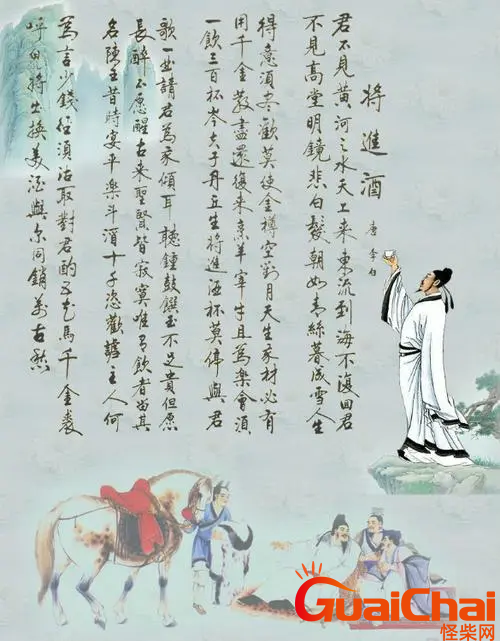 將進酒
唐 李白
君不見黃河之水天上来東流到海不復回君
不見高堂明鏡悲白髮朝如青絲暮成雪人生
得意須盡歡莫使金樽空對月天生我材必有
用千金散盡還復来烹羊宰牛且為樂會須
一飲三百杯岑夫子丹丘生將進酒杯莫停與君
歌一曲請君為我傾耳聽鍾鼓饌玉不足貴但愿
長醉不愿醒古来聖賢皆寂寞唯有飲者留其
名陳王昔時宴平樂斗酒十千恣歡謔主人何
為言少錢径須沽取對君酌五花馬千金裘
呼兒將出換美酒與尔同銷萬古愁
GuaiChai
怪柴网